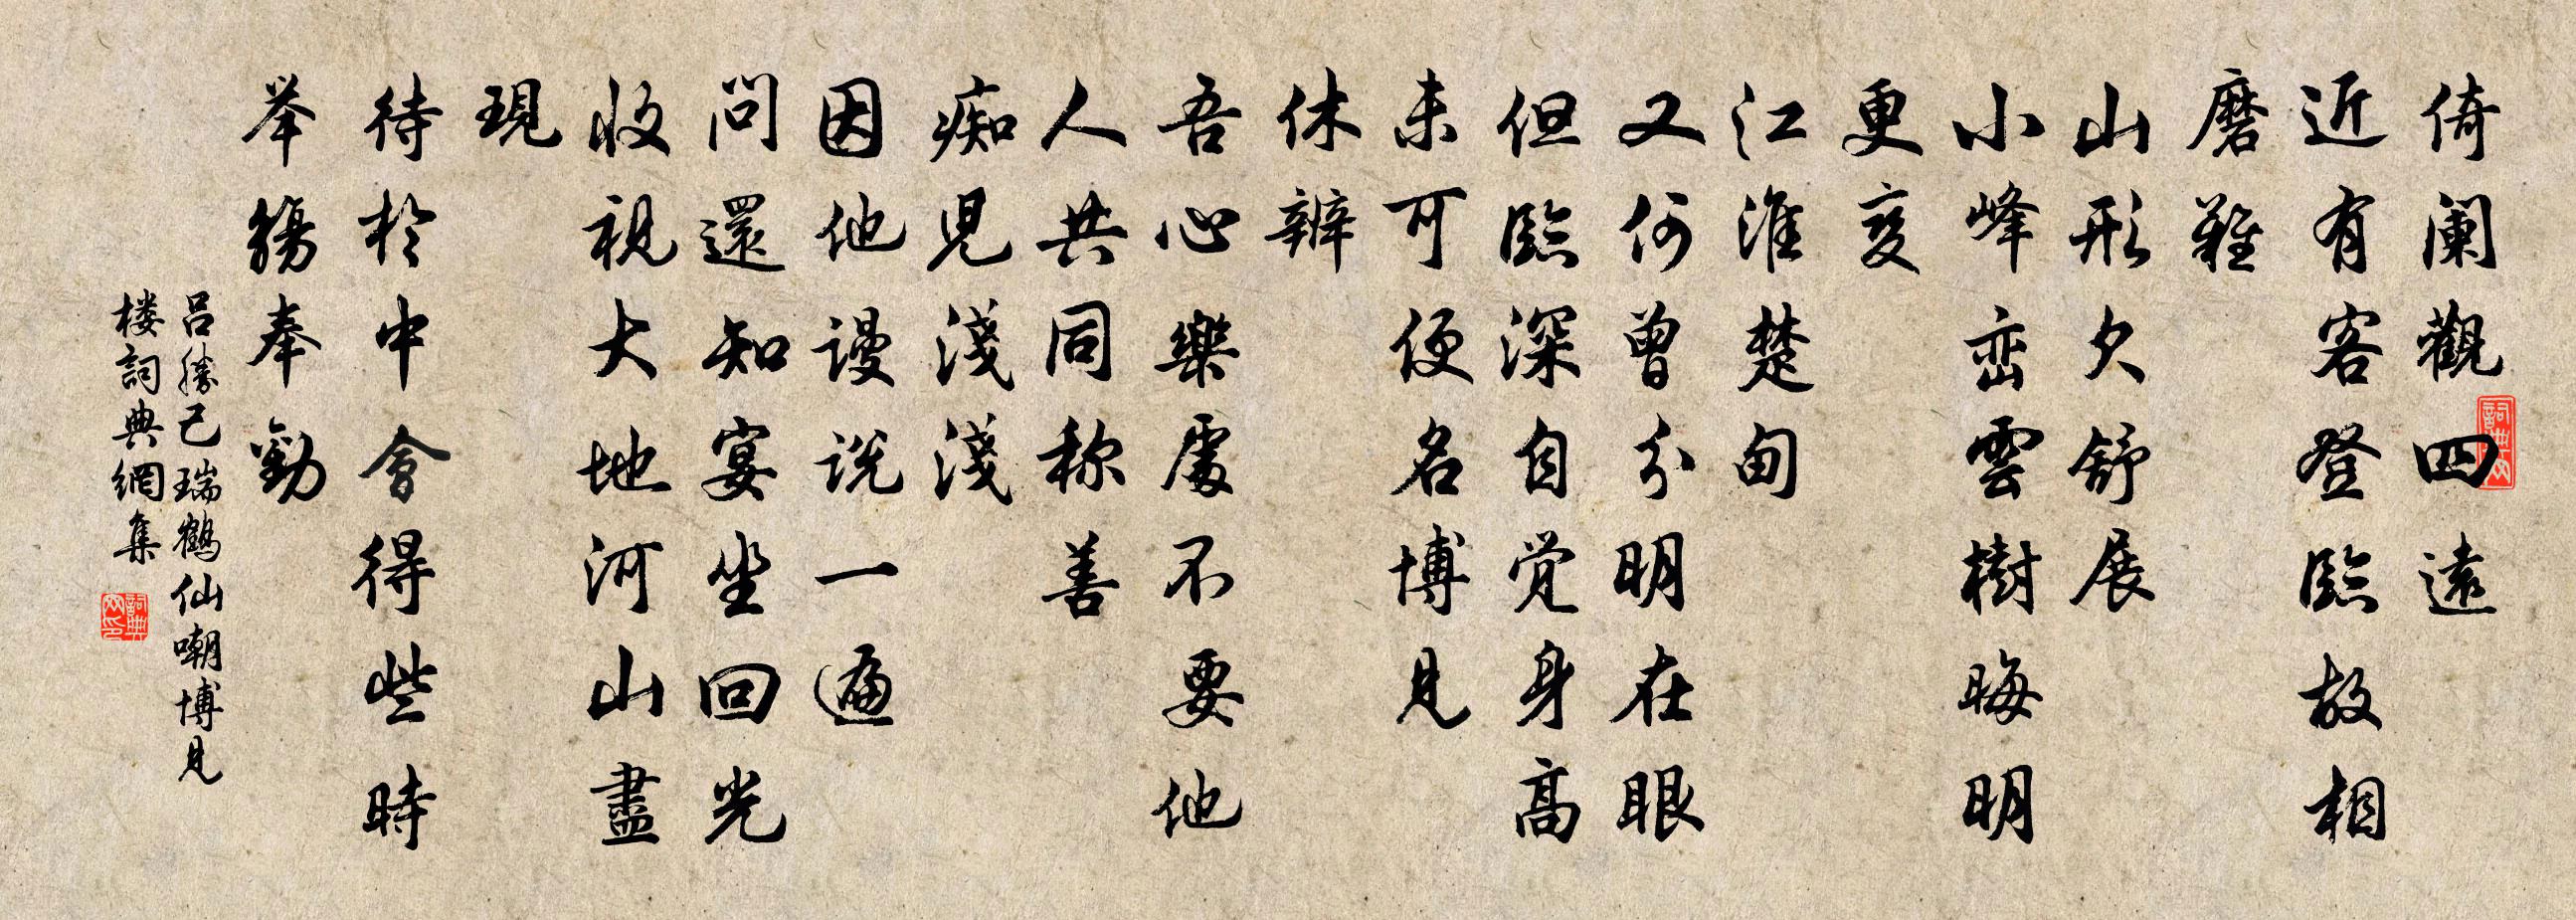 倚阑觀四遠
近有客登臨故相
磨難
山形欠舒展
小峰巒雲樹晦明
更变
江淮楚甸
又何曾分明在眼
但臨深自觉身高
未可便名博見
休辩
吾心樂處不要他
人共同称善
痴児淺淺
因他谩说一遍
問還知宴坐回光
收視大地河山盡
現
待於中會得些時
举觴奉勸
吕勝己瑞鶴仙嘲博見
楼詞典網集
詞典网
詞典网印